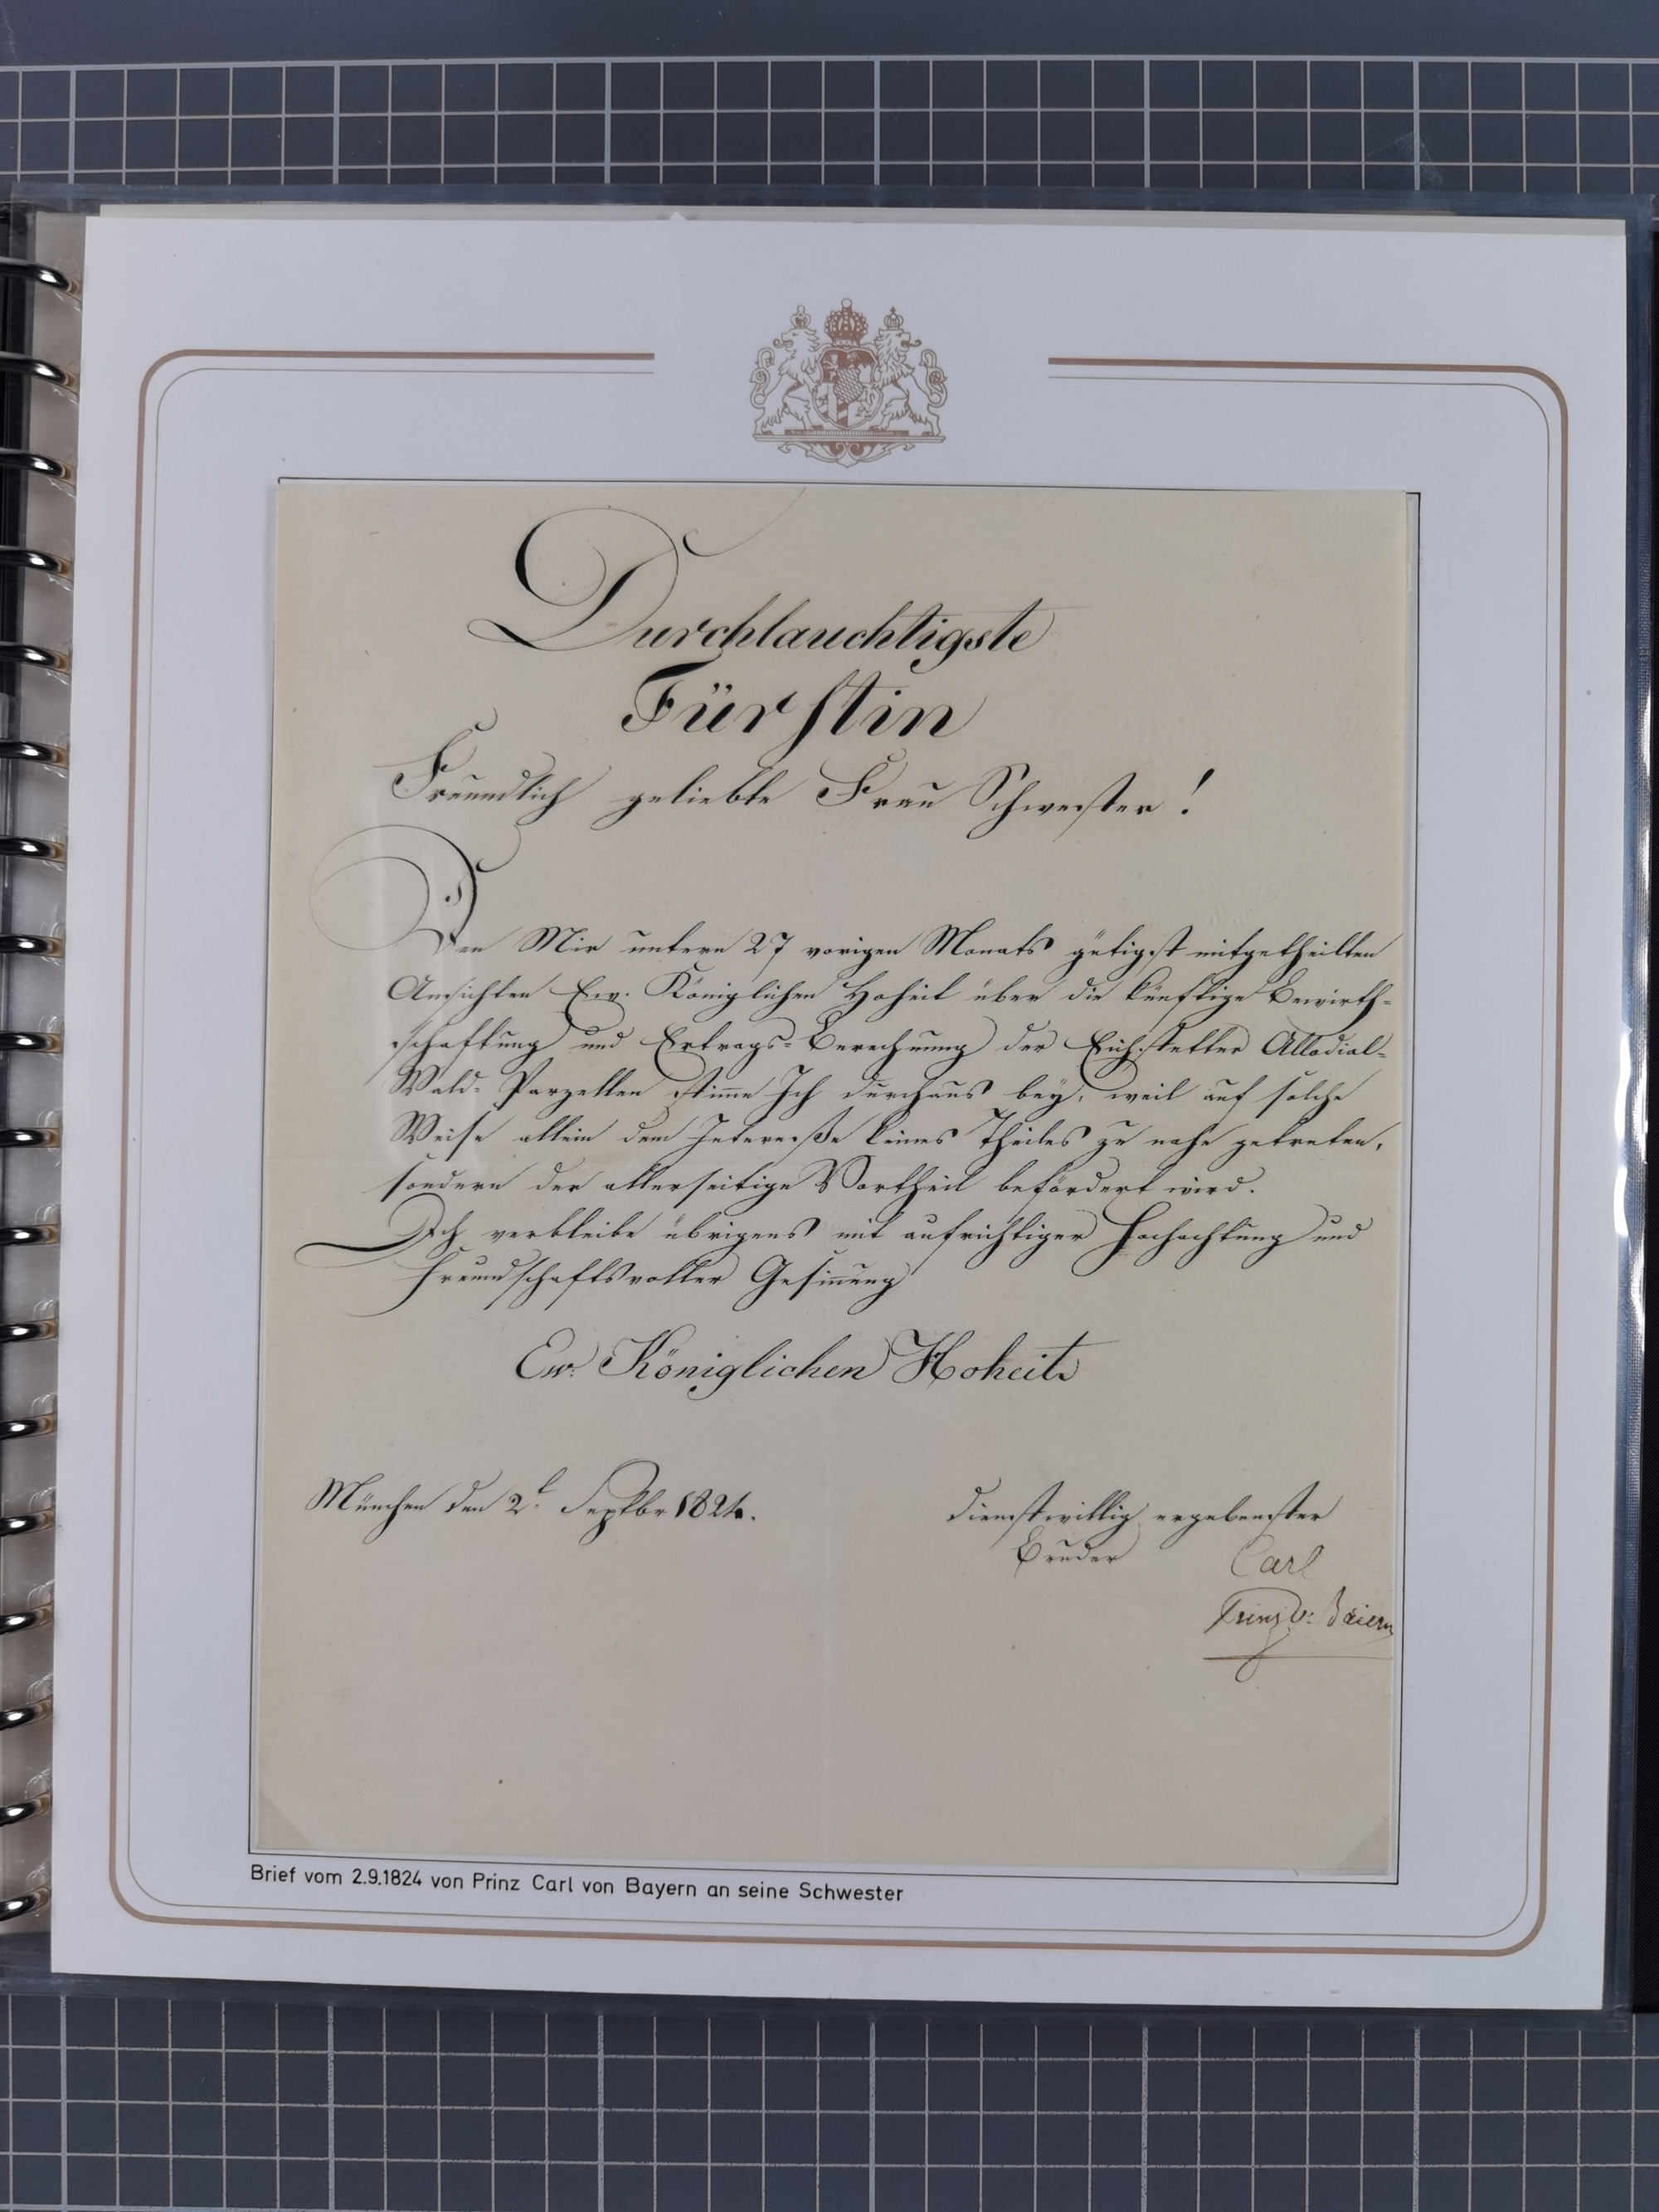 Durchlauchtigste
Fürstin
Freundlich geliebte Frau Schwester!
Den Mir untern 27 vorigen Monats gütigst mitgetheilten
Ansichten Ew. Königlichen Hoheit über die künftige Bewirth-
schaftung und Ertrags-Berechnung der Eichstetter Allodial-
Wald-Parzellen stimme Ich durchaus bey, weil auf solche
Weise allein dem Interesse keines Theiles zu nahe getreten,
sondern der allerseitige Vortheil befördert wird.
Ich verbleibe übrigens mit aufrichtiger Hochachtung und
freundschaftsvoller Gesinnung
Ew. Königlichen Hoheit
München den 2t Septbr 1824.
dienstwillig ergebenster
Bruder Carl
Prinz v: Baiern
Brief vom 2.9.1824 von Prinz Carl von Bayern an seine Schwester